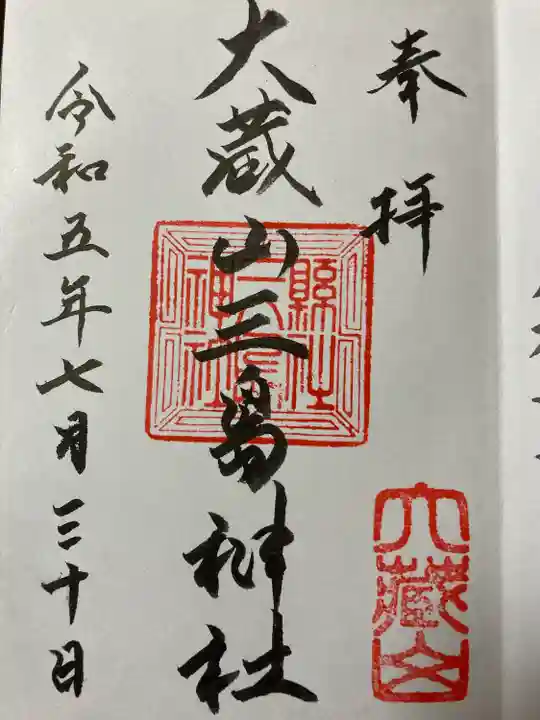 奉拝
大蔵山三島神社
令和五年七月三十日
大藏山